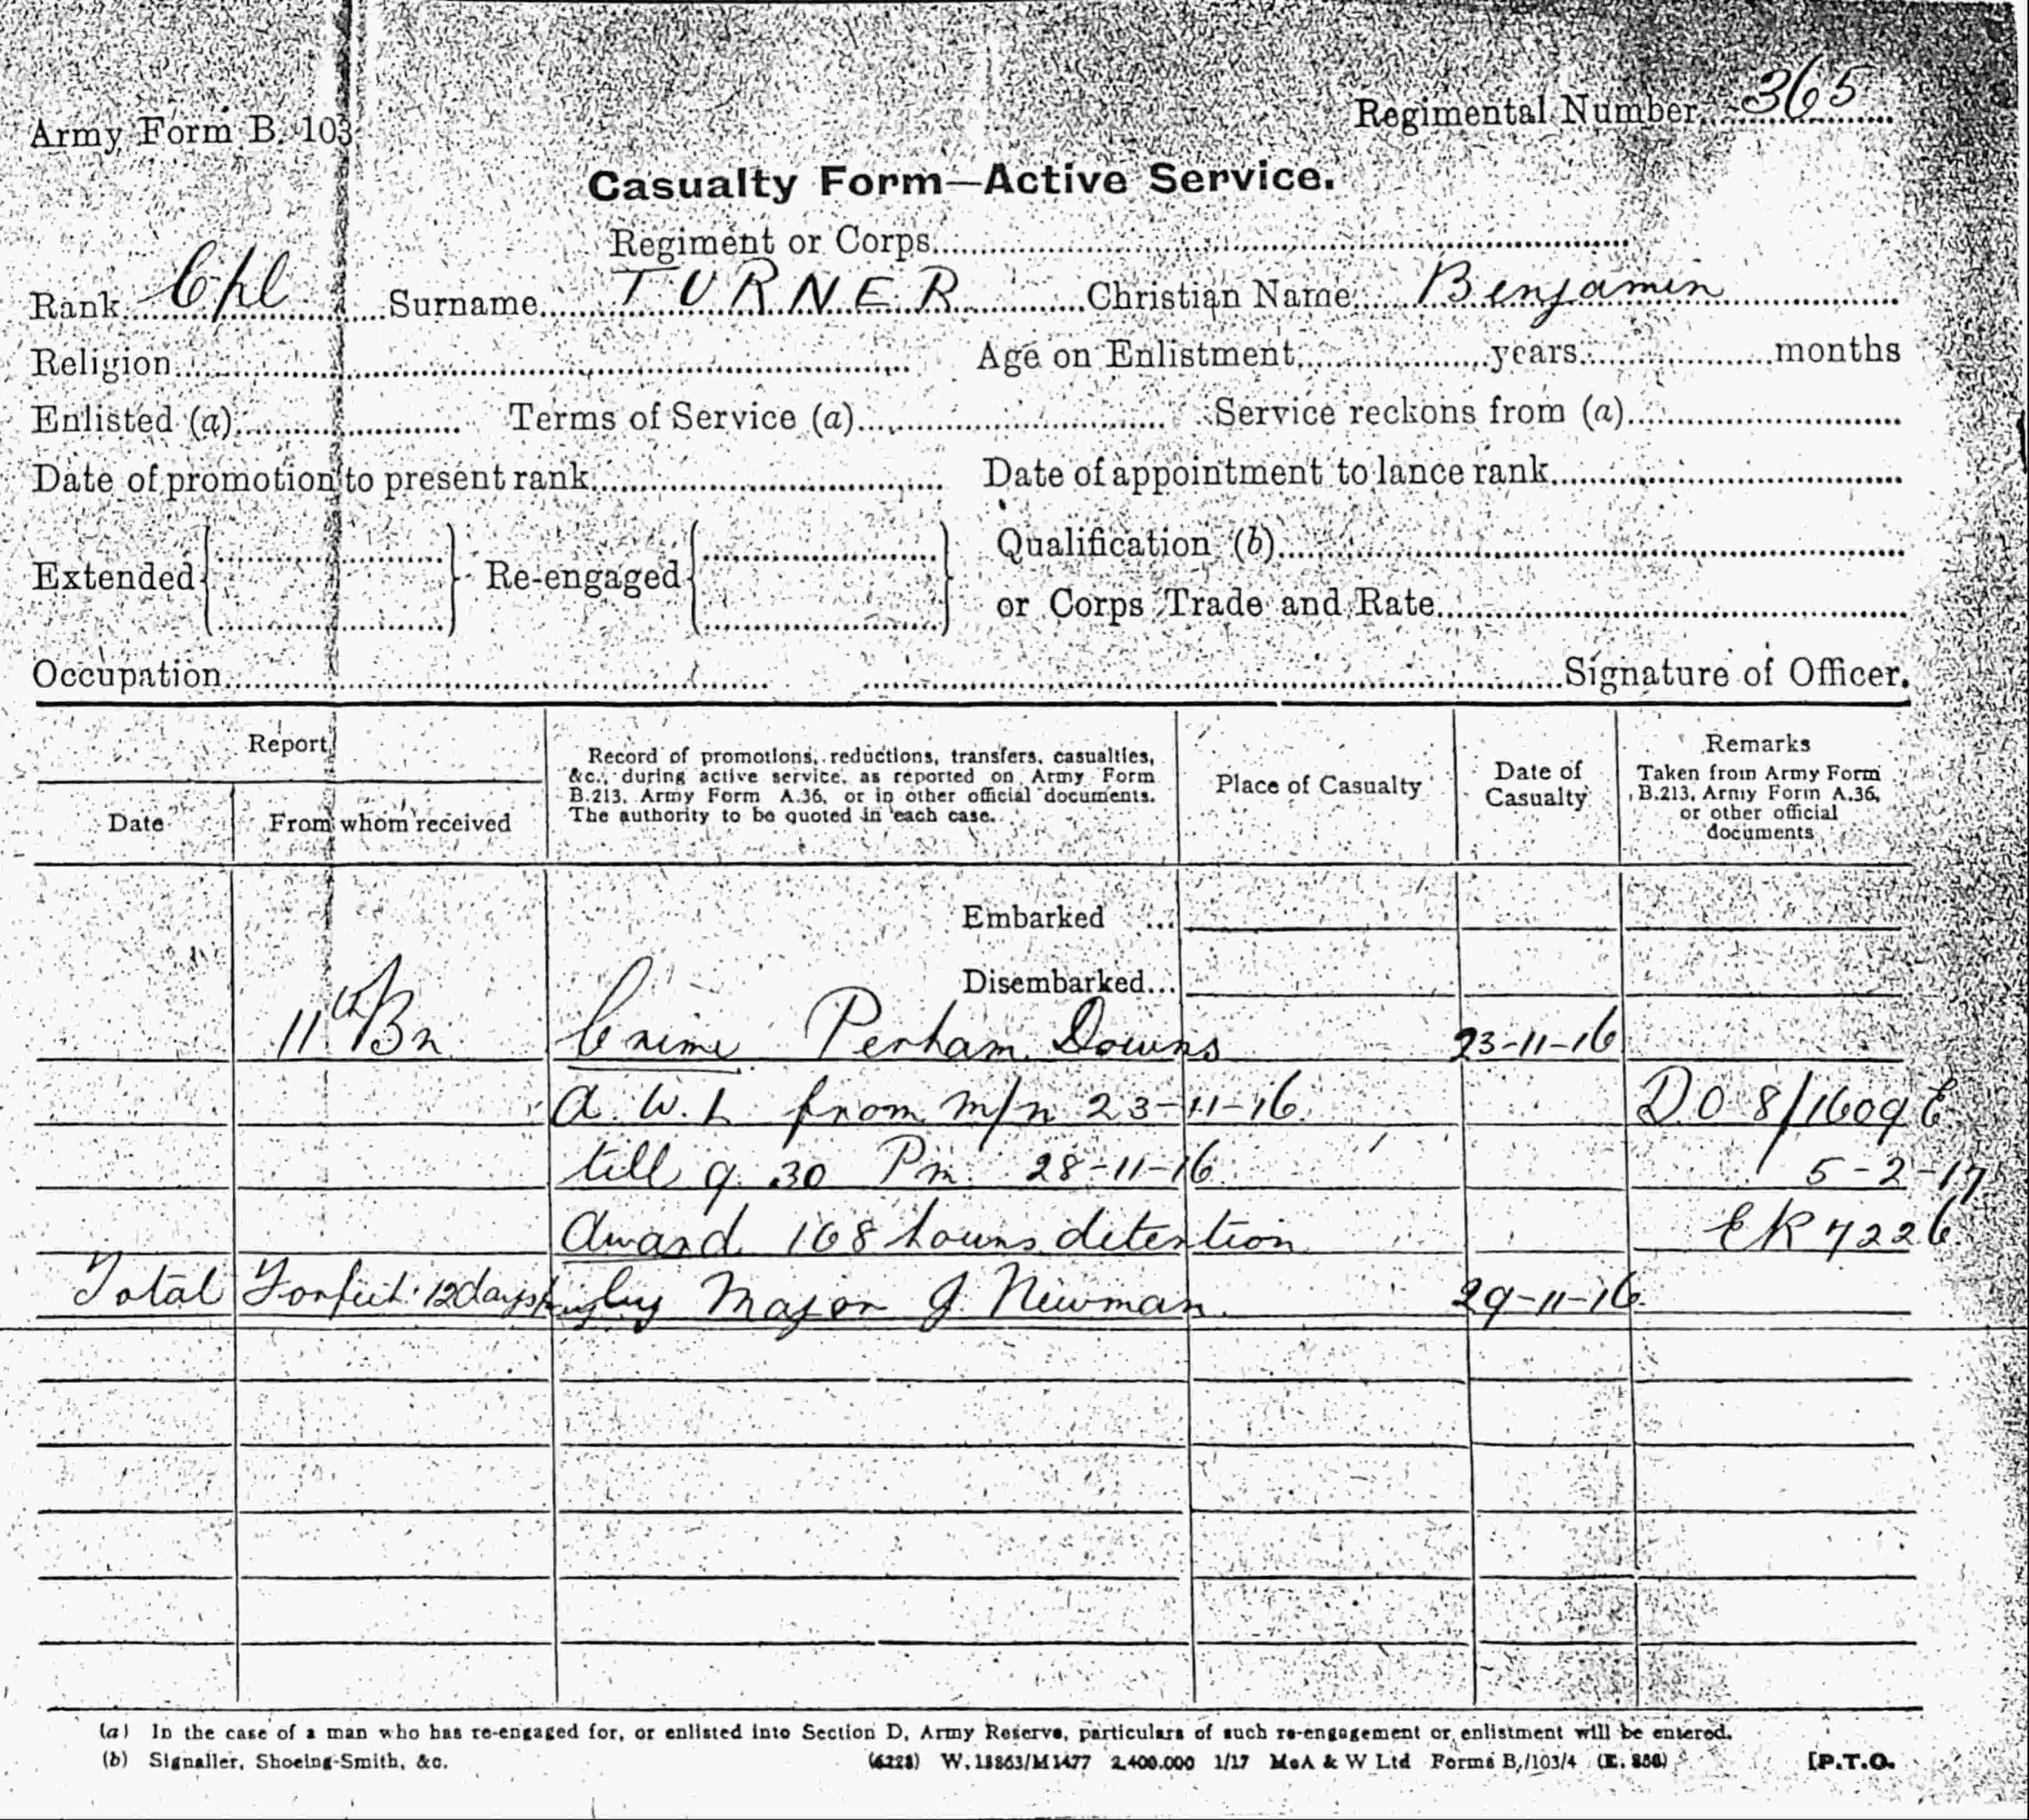 Army Form B. 103
Regimental Number 365
Casualty Form—Active Service.
Regiment or Corps
Rank Cpl Surname TURNER Christian Name Benjamin
Religion Age on Enlistment years months
Enlisted (a) Terms of Service (a) Service reckons from (a)
Date of promotion to present rank Date of appointment to lance rank
Extended Re-engaged Qualification (b)
or Corps Trade and Rate
Occupation Signature of Officer.
Report
Date From whom received
Record of promotions, reductions, transfers, casualties,
&c., during active service, as reported on Army Form
B.213, Army Form A.36, or in other official documents.
The authority to be quoted in each case.
Place of Casualty
Date of
Casualty
Remarks
Taken from Army Form
B.213, Army Form A.36,
or other official
documents
Embarked ...
Disembarked...
11th Bn Crime Perham Downs 23-11-16
A.W.L from m/n 23-11-16 DO 8/1609 E
till 9.30 Pm 28-11-16 5-2-17
Award 168 hours detention ER 7226
Total Forfeit 12 days pay by Major J. Newman 29-11-16
(a) In the case of a man who has re-engaged for, or enlisted into Section D, Army Reserve, particulars of such re-engagement or enlistment will be entered.
(b) Signaller, Shoeing-Smith, &c. (6228) W.13863/M1477 2,400,000 1/17 McA & W Ltd Forms B./103/4 (E. 856) [P.T.O.